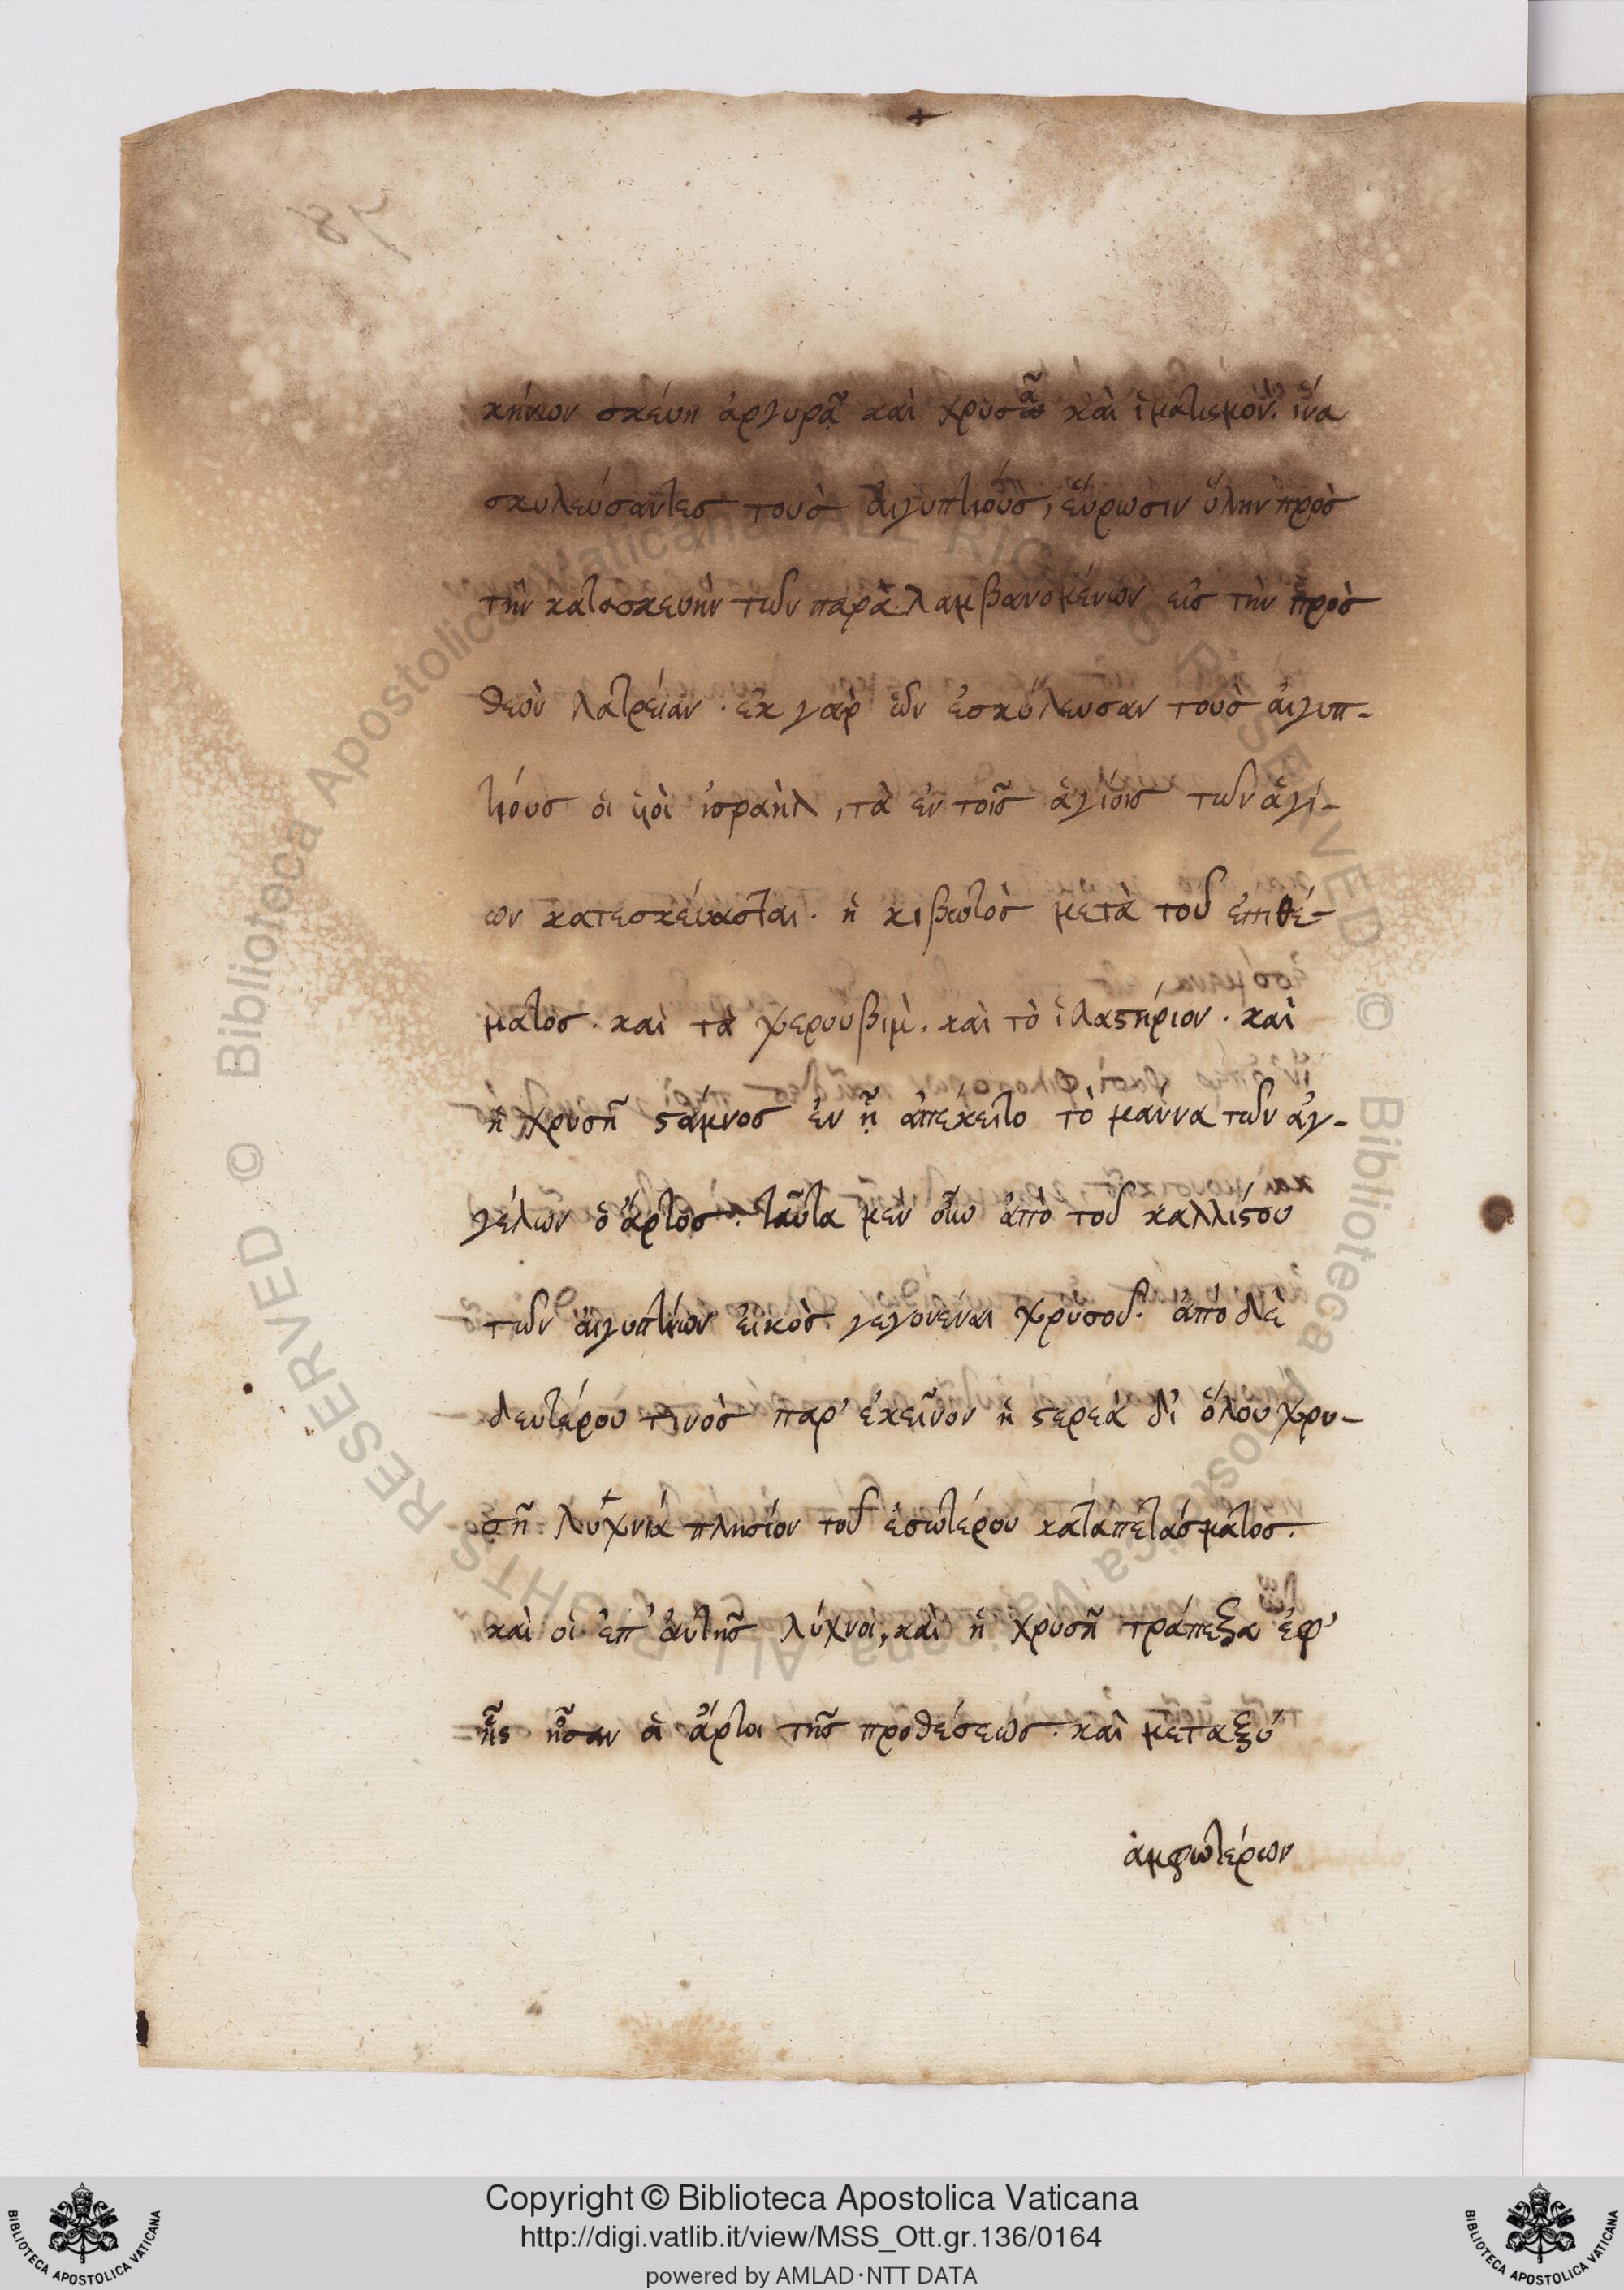 κήνιον σκέυη ἀργυρᾶ καὶ χρυσᾶ καὶ ἱματισμόν. ἵνα
σκυλεύσαντες τοὺς ἀιγυπτίους, εὕρωσιν ὕλην πρὸς
τὴν κατασκευὴν τῶν παραλαμβανομένων εἰς τὴν πρὸς
θεὸν λατρείαν. ἐκ γὰρ ὧν ἐσκύλευσαν τοὺς ἀιγυπ-
τίους οἱ ὑοὶ ἰσραὴλ, τὰ ἐν τοῖς ἁγίοις τῶν ἁγί-
ων κατεσκέυασται. ἡ κιβωτὸς μετὰ τοῦ ἐπιθέ-
ματος. καὶ τὰ χερουβιμ. καὶ τὸ ἱλαϛήριον. καὶ
ἡ χρυσῆ ϛάμνος ἐν ᾗ ἀπέκειτο τὸ μάννα τῶν ἀγ-
γέλων ὁ ἄρτος. ταῦτα μὲν οὖν ἀπὸ τοῦ καλλίϛου
τῶν ἀιγυπτίων εἰκὸς γεγονέναι χρυσοῦ. ἀπὸ δὲ
δευτέρου τινὸς παρ' ἐκεῖνον ἡ ϛερεὰ δι' ὅλου χρυ-
σῆ λυχνία πλησίον τοῦ ἐσωτέρου καταπετάσματος.
καὶ οἱ ἐπ' ἀυτῆς λύχνοι, καὶ ἡ χρυσῆ τράπεζα ἐφ'
ἧς ἦσαν οἱ ἄρτοι τῆς προθέσεως. καὶ μεταξὺ
ἀμφωτέρων
Copyright © Biblioteca Apostolica Vaticana
http://digi.vatlib.it/view/MSS_Ott.gr.136/0164
powered by AMLAD·NTT DATA